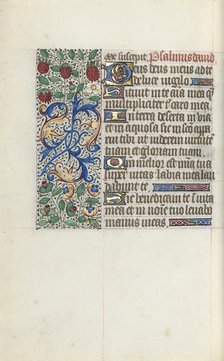 me suscepit. Psalmus david
Deus deus meus ad te
de luce vigilo
Sitivit in te anima mea quam
multipliciter tibi caro mea
In terra deserta invia
et inaquosa sic in sco appa
rui tibi ut viderem virtutem
tuam et gloriam tuam
Quoniam melior est mia tua
super vitas labia mea lau
dabunt te
Sic benedicam te in vita
mea et in noie tuo levabo
manus meas